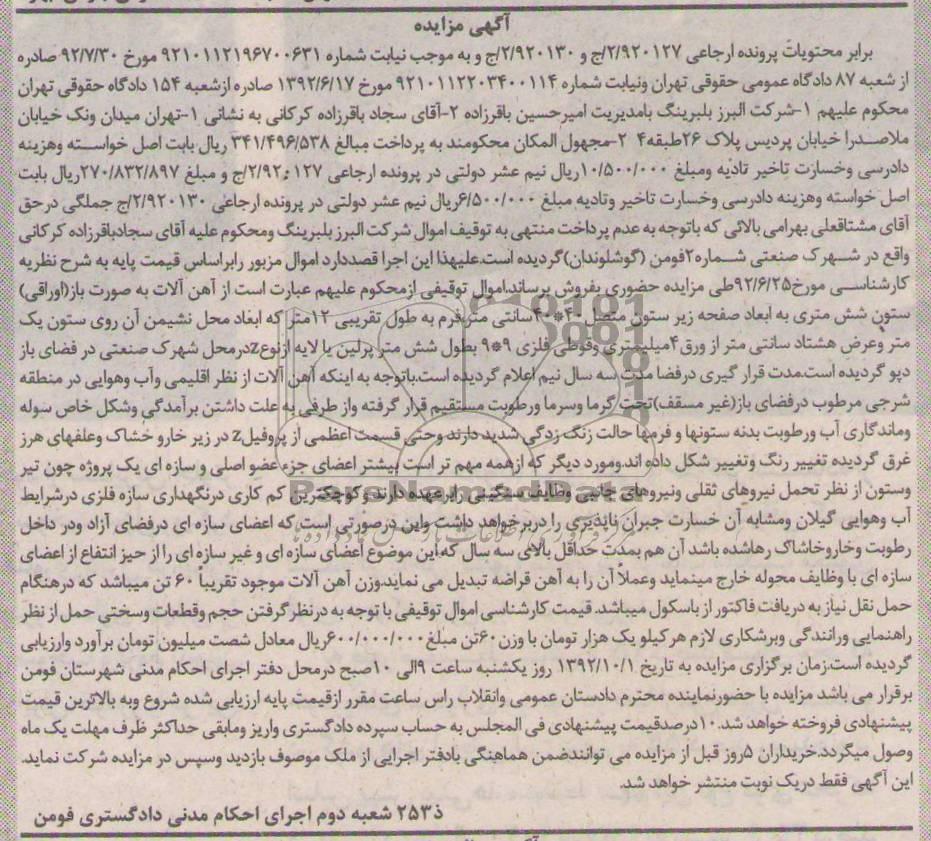 آگهی مزایده
برابر محتویات پرونده ارجاعی ۲/۹۲۰۱۲۷/ج و ۲/۹۲۰۱۳۰/ج و به موجب نیابت شماره ۹۲۱۰۱۱۲۱۹۶۷۰۰۶۳۱ مورخ ۹۲/۷/۳۰ صادره
از شعبه ۸۷ دادگاه عمومی حقوقی تهران ونیابت شماره ۹۲۱۰۱۱۲۲۰۳۴۰۰۱۱۴ مورخ ۱۳۹۲/۶/۱۷ صادره ازشعبه ۱۵۴ دادگاه حقوقی تهران
محکوم علیهم ۱-شرکت البرز بلبرینگ بامدیریت امیرحسین باقرزاده ۲-آقای سجاد باقرزاده کرکانی به نشانی ۱-تهران میدان ونک خیابان
ملاصدرا خیابان پردیس پلاک ۲۶طبقه۴ ۲-مجهول المکان محکومند به پرداخت مبالغ ۳۴۱/۴۹۶/۵۳۸ ریال بابت اصل خواسته وهزینه
دادرسی وخسارت تاخیر تادیه ومبلغ ۱۰/۵۰۰/۰۰۰ریال نیم عشر دولتی در پرونده ارجاعی ۲/۹۲۰۱۲۷/ج و مبلغ ۲۷۰/۸۳۲/۸۹۷ریال بابت
اصل خواسته وهزینه دادرسی وخسارت تاخیر وتادیه مبلغ ۶/۵۰۰/۰۰۰ریال نیم عشر دولتی در پرونده ارجاعی ۲/۹۲۰۱۳۰/ج جملگی درحق
آقای مشتاقعلی بهرامی بالائی که باتوجه به عدم پرداخت منتهی به توقیف اموال شرکت البرز بلبرینگ ومحکوم علیه آقای سجادباقرزاده کرکانی
واقع در شهرک صنعتی شماره۲فومن (گوشلوندان)گردیده است.علیهذا این اجرا قصددارد اموال مزبور رابراساس قیمت پایه به شرح نظریه
کارشناسی مورخ۹۲/۶/۲۵طی مزایده حضوری بفروش برساند.اموال توقیفی ازمحکوم علیهم عبارت است از آهن آلات به صورت باز(اوراقی)
ستون شش متری به ابعاد صفحه زیر ستون متصل ۴۰*۴۰سانتی متر،فرم به طول تقریبی ۱۲متر که ابعاد محل نشیمن آن روی ستون یک
متر وعرض هشتاد سانتی متر از ورق۴میلیمتری وقوطی فلزی ۹*۹ بطول شش متر پرلین یا لایه ازنوعzدرمحل شهرک صنعتی در فضای باز
دپو گردیده است.مدت قرار گیری درفضا مدت سه سال نیم اعلام گردیده است.باتوجه به اینکه آهن آلات از نظر اقلیمی وآب وهوایی در منطقه
شرجی مرطوب درفضای باز(غیر مسقف)تحت گرما وسرما ورطوبت مستقیم قرار گرفته واز طرفی به علت داشتن برآمدگی وشکل خاص سوله
وماندگاری آب ورطوبت بدنه ستونها و فرمها حالت زنگ زدگی شدید دارند وحتی قسمت اعظمی از پروفیلz در زیر خارو خشاک وعلفهای هرز
غرق گردیده تغییر رنگ وتغییر شکل داده اند.ومورد دیگر که ازهمه مهم تر است بیشتر اعضای جزء عضو اصلی و سازه ای یک پروژه چون تیر
وستون از نظر تحمل نیروهای ثقلی ونیروهای جانبی وظایف سنگینی رابرعهده دارند وکوچکترین کم کاری درنگهداری سازه فلزی درشرایط
آب وهوایی گیلان ومشابه آن خسارت جبران ناپذیری را دربرخواهد داشت واین درصورتی است که اعضای سازه ای درفضای آزاد ودر داخل
رطوبت وخاروخاشاک رهاشده باشد آن هم بمدت حداقل بالای سه سال که.این موضوع اعضای سازه ای و غیر سازه ای را از حیز انتفاع از اعضای
سازه ای با وظایف محوله خارج مینماید وعملاً آن را به آهن قراضه تبدیل می نماید.وزن آهن آلات موجود تقریباً ۶۰ تن میباشد که درهنگام
حمل نقل نیاز به دریافت فاکتور از باسکول میباشد. قیمت کارشناسی اموال توقیفی با توجه به درنظرگرفتن حجم وقطعات وسختی حمل از نظر
راهنمایی ورانندگی وبرشکاری لازم هرکیلو یک هزار تومان با وزن۶۰تن مبلغ۶۰۰/۰۰۰/۰۰۰ریال معادل شصت میلیون تومان برآورد وارزیابی
گردیده است.زمان برگزاری مزایده به تاریخ ۱۳۹۲/۱۰/۱ روز یکشنبه ساعت ۹الی ۱۰صبح درمحل دفتر اجرای احکام مدنی شهرستان فومن
برقرار می باشد مزایده با حضورنماینده محترم دادستان عمومی وانقلاب راس ساعت مقرر ازقیمت پایه ارزیابی شده شروع وبه بالاترین قیمت
پیشنهادی فروخته خواهد شد.۱۰درصدقیمت پیشنهادی فی المجلس به حساب سپرده دادگستری واریز ومابقی حداکثر ظرف مهلت یک ماه
وصول میگردد.خریداران ۵روز قبل از مزایده می توانندضمن هماهنگی بادفتر اجرایی از ملک موصوف بازدید وسپس در مزایده شرکت نماید.
این آگهی فقط دریک نوبت منتشر خواهد شد.
ذ۲۵۳ شعبه دوم اجرای احکام مدنی دادگستری فومن
ParsNamadData